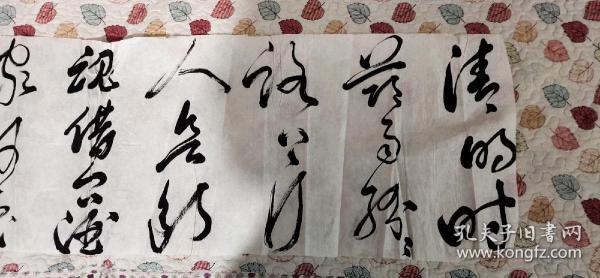 清明时
节雨纷々
路上行
人欲断
魂借问酒
家何处
孔夫子旧书网
kongfz.com